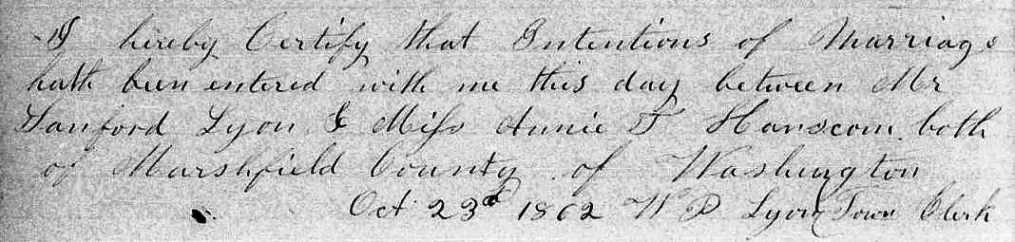 I hereby Certify that Intentions of Marriage
hath been entered with me this day between Mr
Sanford Lyon & Miss Annie T Hanscom both
of Marshfield County of Washington
Oct 23d 1862 W D Lyon Town Clerk